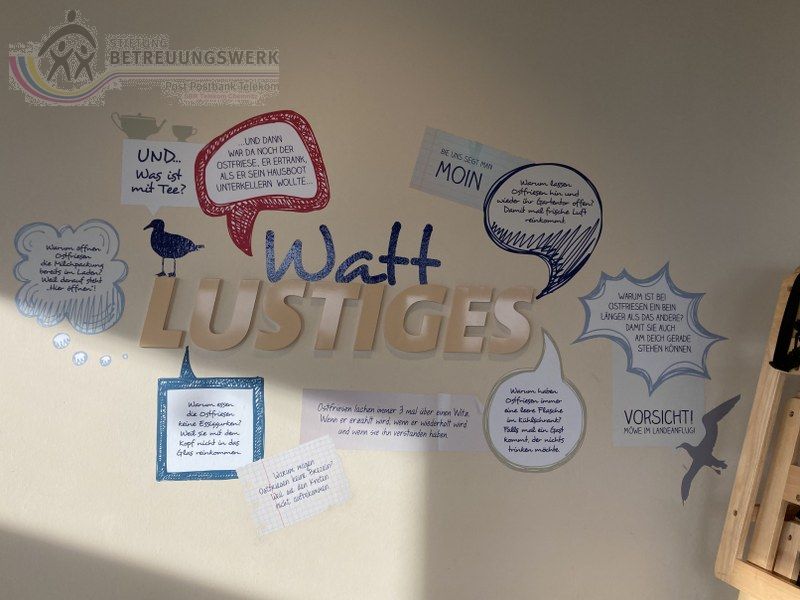 STIFTUNG
BETREUUNGSWERK
Post Postbank Telekom
UND...
Was ist
mit Tee?
...UND DANN
WAR DA NOCH DER
OSTFRIESE, ER ERTRANK,
ALS ER SEIN HAUSBOOT
UNTERKELLERN WOLLTE...
BEI UNS SEGT MAN
MOIN
Warum lassen
Ostfriesen hin und
wieder ihr Gartentor offen?
Damit mal frische Luft
reinkommt.
Warum öffnen
Ostfriesen
die Milchpackung
bereits im Laden?
Weil darauf steht
„Hier öffnen"!
Watt
LUSTIGES
WARUM IST BEI
OSTFRIESEN EIN BEIN
LÄNGER ALS DAS ANDERE?
DAMIT SIE AUCH
AM DEICH GERADE
STEHEN KÖNNEN.
Warum essen
die Ostfriesen
keine Essiggurken?
Weil sie mit dem
Kopf nicht in das
Glas reinkommen.
Ostfriesen lachen immer 3 mal über einen Witz.
Wenn er erzählt wird, wenn er wiederholt wird
und wenn sie ihn verstanden haben.
Warum haben
Ostfriesen immer
eine leere Flasche
im Kühlschrank?
Falls mal ein Gast
kommt, der nichts
trinken möchte.
VORSICHT!
MÖWE IM LANDEANFLUG!
Warum mögen
Ostfriesen keine Brezeln?
Weil sie den Knoten
nicht aufbekommen